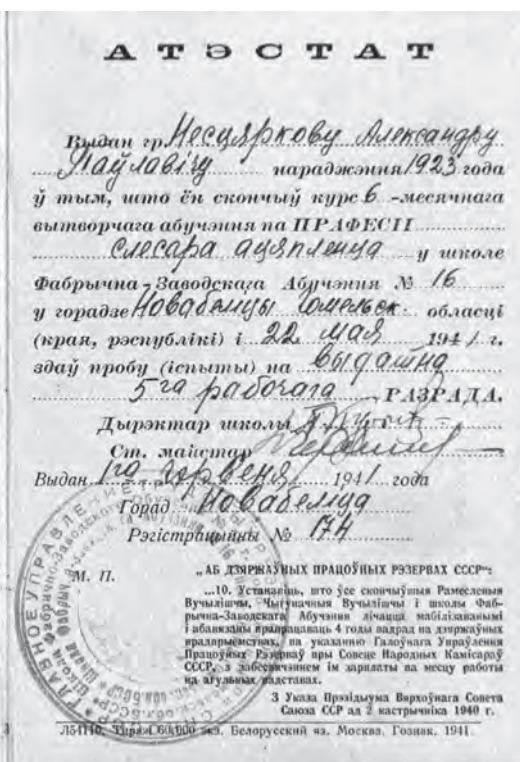 АТЭСТАТ
Выдан гр. Несцяркову Александру
Паўлавічу нараджэння 1923 года
ў тым, што ён скончыў курс 6 -месячнага
вытворчага абучэння па ПРАФЕСІІ
слесара у школе
Фабрычна-Заводскага Абучэння № 16
у горадзе Новабеліцы Гомельск. обласці
(края, рэспублікі) і 22 мая 1941 г.
здаў пробу (іспыты) на выдатна
5га рабочага РАЗРАДА.
Дырэктар школы
Ст. майстар
Выдан 1га 1941 года
Горад Новабеліца
Рэгістрацыйны № 174
М. П.
„АБ ДЗЯРЖАЎНЫХ ПРАЦОЎНЫХ РЭЗЕРВАХ СССР“:
...10. Устанавіць, што ўсе скончыўшыя Рамесленыя
Вучылішчы, Чыгуначныя Вучылішчы і школы Фаб-
рычна-Заводскага Абучэння лічацца мабілізаванымі
і абавязаны прапрацаваць 4 годы падрад на дзяржаўных
прадпрыемствах, па указанию Галоўнага Упраўлення
Працоўных Рэзерваў пры Совеце Народных Камісараў
СССР, з забеспячэннем ім зарплаты па месцу работы
на агульных падставах.
З Указа Прэзідыума Вярхоўнага Совета
Саюза ССР ад 2 кастрычніка 1940 г.
Л54110. Тираж 60,000 экз. Белорусский яз. Москва. Гознак. 1941.